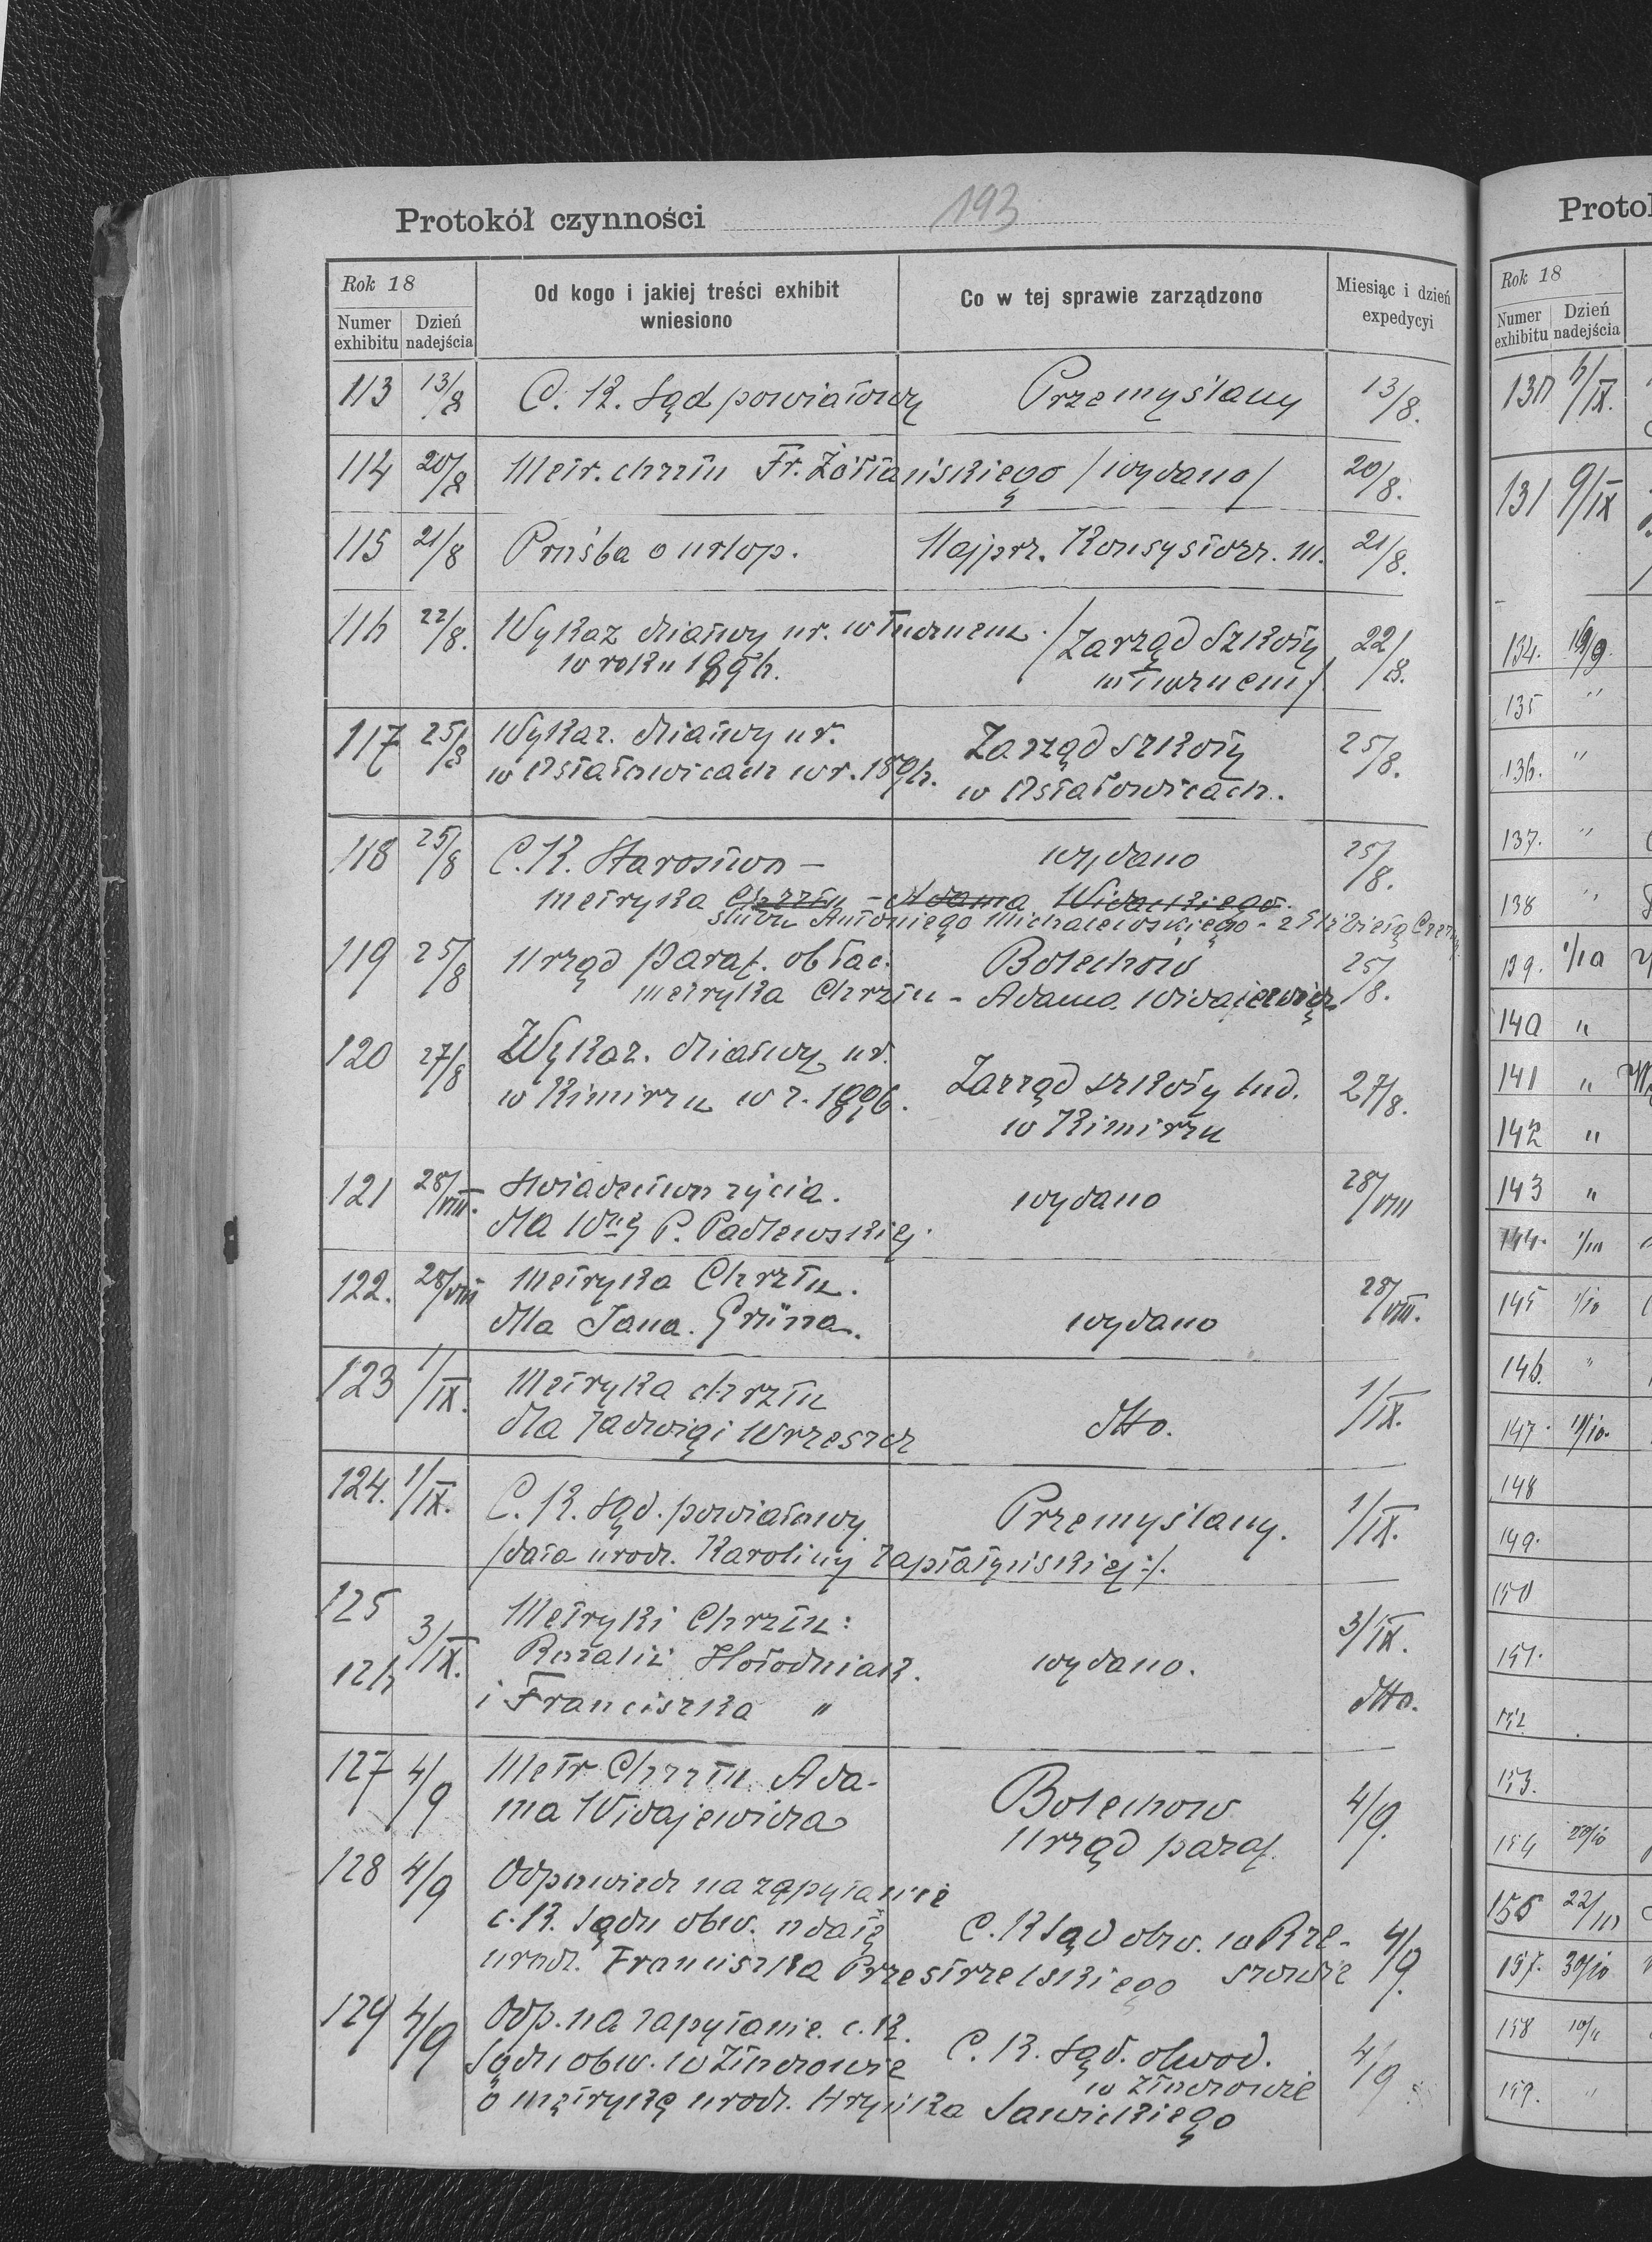 Protokół czynności 193
Rok 18
Numer exhibitu
Dzień nadejścia
Od kogo i jakiej treści exhibit
wniesiono
Co w tej sprawie zarządzono
Miesiąc i dzień
expedycyi
113 13/8 C. K. Sąd powiatowy Przemyślany 13/8.
114 20/8 Metr. chrztu Fr. Żółtańskiego /wydano/ 20/8.
115 21/8 Prośba o urlop. Najprz. Konsystorz. 21/8.
116 22/8. Wykaz dziatwy ur. w Turnem. /Zarząd Szkoły 22/8.
w roku 1896.
117 25/8 Wykaz. dziatwy ur. Zarząd szkoły 25/8.
w Ostałowicach w r. 1896. w Ostałowicach.
118 25/8 C. K. Starostwo – wydano 25/8.
metryka Chrztu – Adama
ślubu Antoniego Michalewskiego – z Elżbietą
119 25/8 Urząd paraf. ob łac. Bolechów 25/8.
metryka Chrztu – Adama Widajewicz
120 27/8 Wykaz. dziatwy ur.
w Kimirzu w r. 1896. Zarząd szkoły lud. 27/8.
w Kimirzu
121 28/VIII. Świadectwo życia. wydano 28/VIII
dla Wnej P. Padlewskiej.
122. 28/VIII Metryka Chrztu. 28/VIII.
dla Jana. Grüna. wydano
123 1/IX. Metryka chrztu 1/IX.
dla Jadwigi Wrzeszcz dtto.
124. 1/IX. C. K. Sąd. powiatowy Przemyślany. 1/IX.
/data urodz. Karoliny Zapłatyńskiej:/.
125 3/IX. Metryki Chrztu: 3/IX.
126 Rozalii Hołodniak. wydano.
i Franciszka " dtto.
127 4/9 Metr Chrztu Ada-
ma Widajewicza Bolechow 4/9.
Urząd paraf.
128 4/9 Odpowiedz na zapytanie
c. K. Sądu obw. o datę C. K Sąd obw. w Rze- 4/9.
urodz. Franciszka Przestrzelskiego szowie
129 4/9 Odp. na zapytanie. c. K.
Sądu obw. w Złoczowie C. K. Sąd. obwod. 4/9
o metrykę urodz. Hryńka Sawickiego
w Złoczowie
Protok
Rok 18
Numer exhibitu
Dzień nadejścia
130
131 9/IX
134.
135 "
136. "
137. "
138 "
139.
140 "
141 "
142 "
143 "
144.
145 1/10
146. "
147
148
149.
150
151.
152
153.
154 20/10
157. 30/10
158
159. "